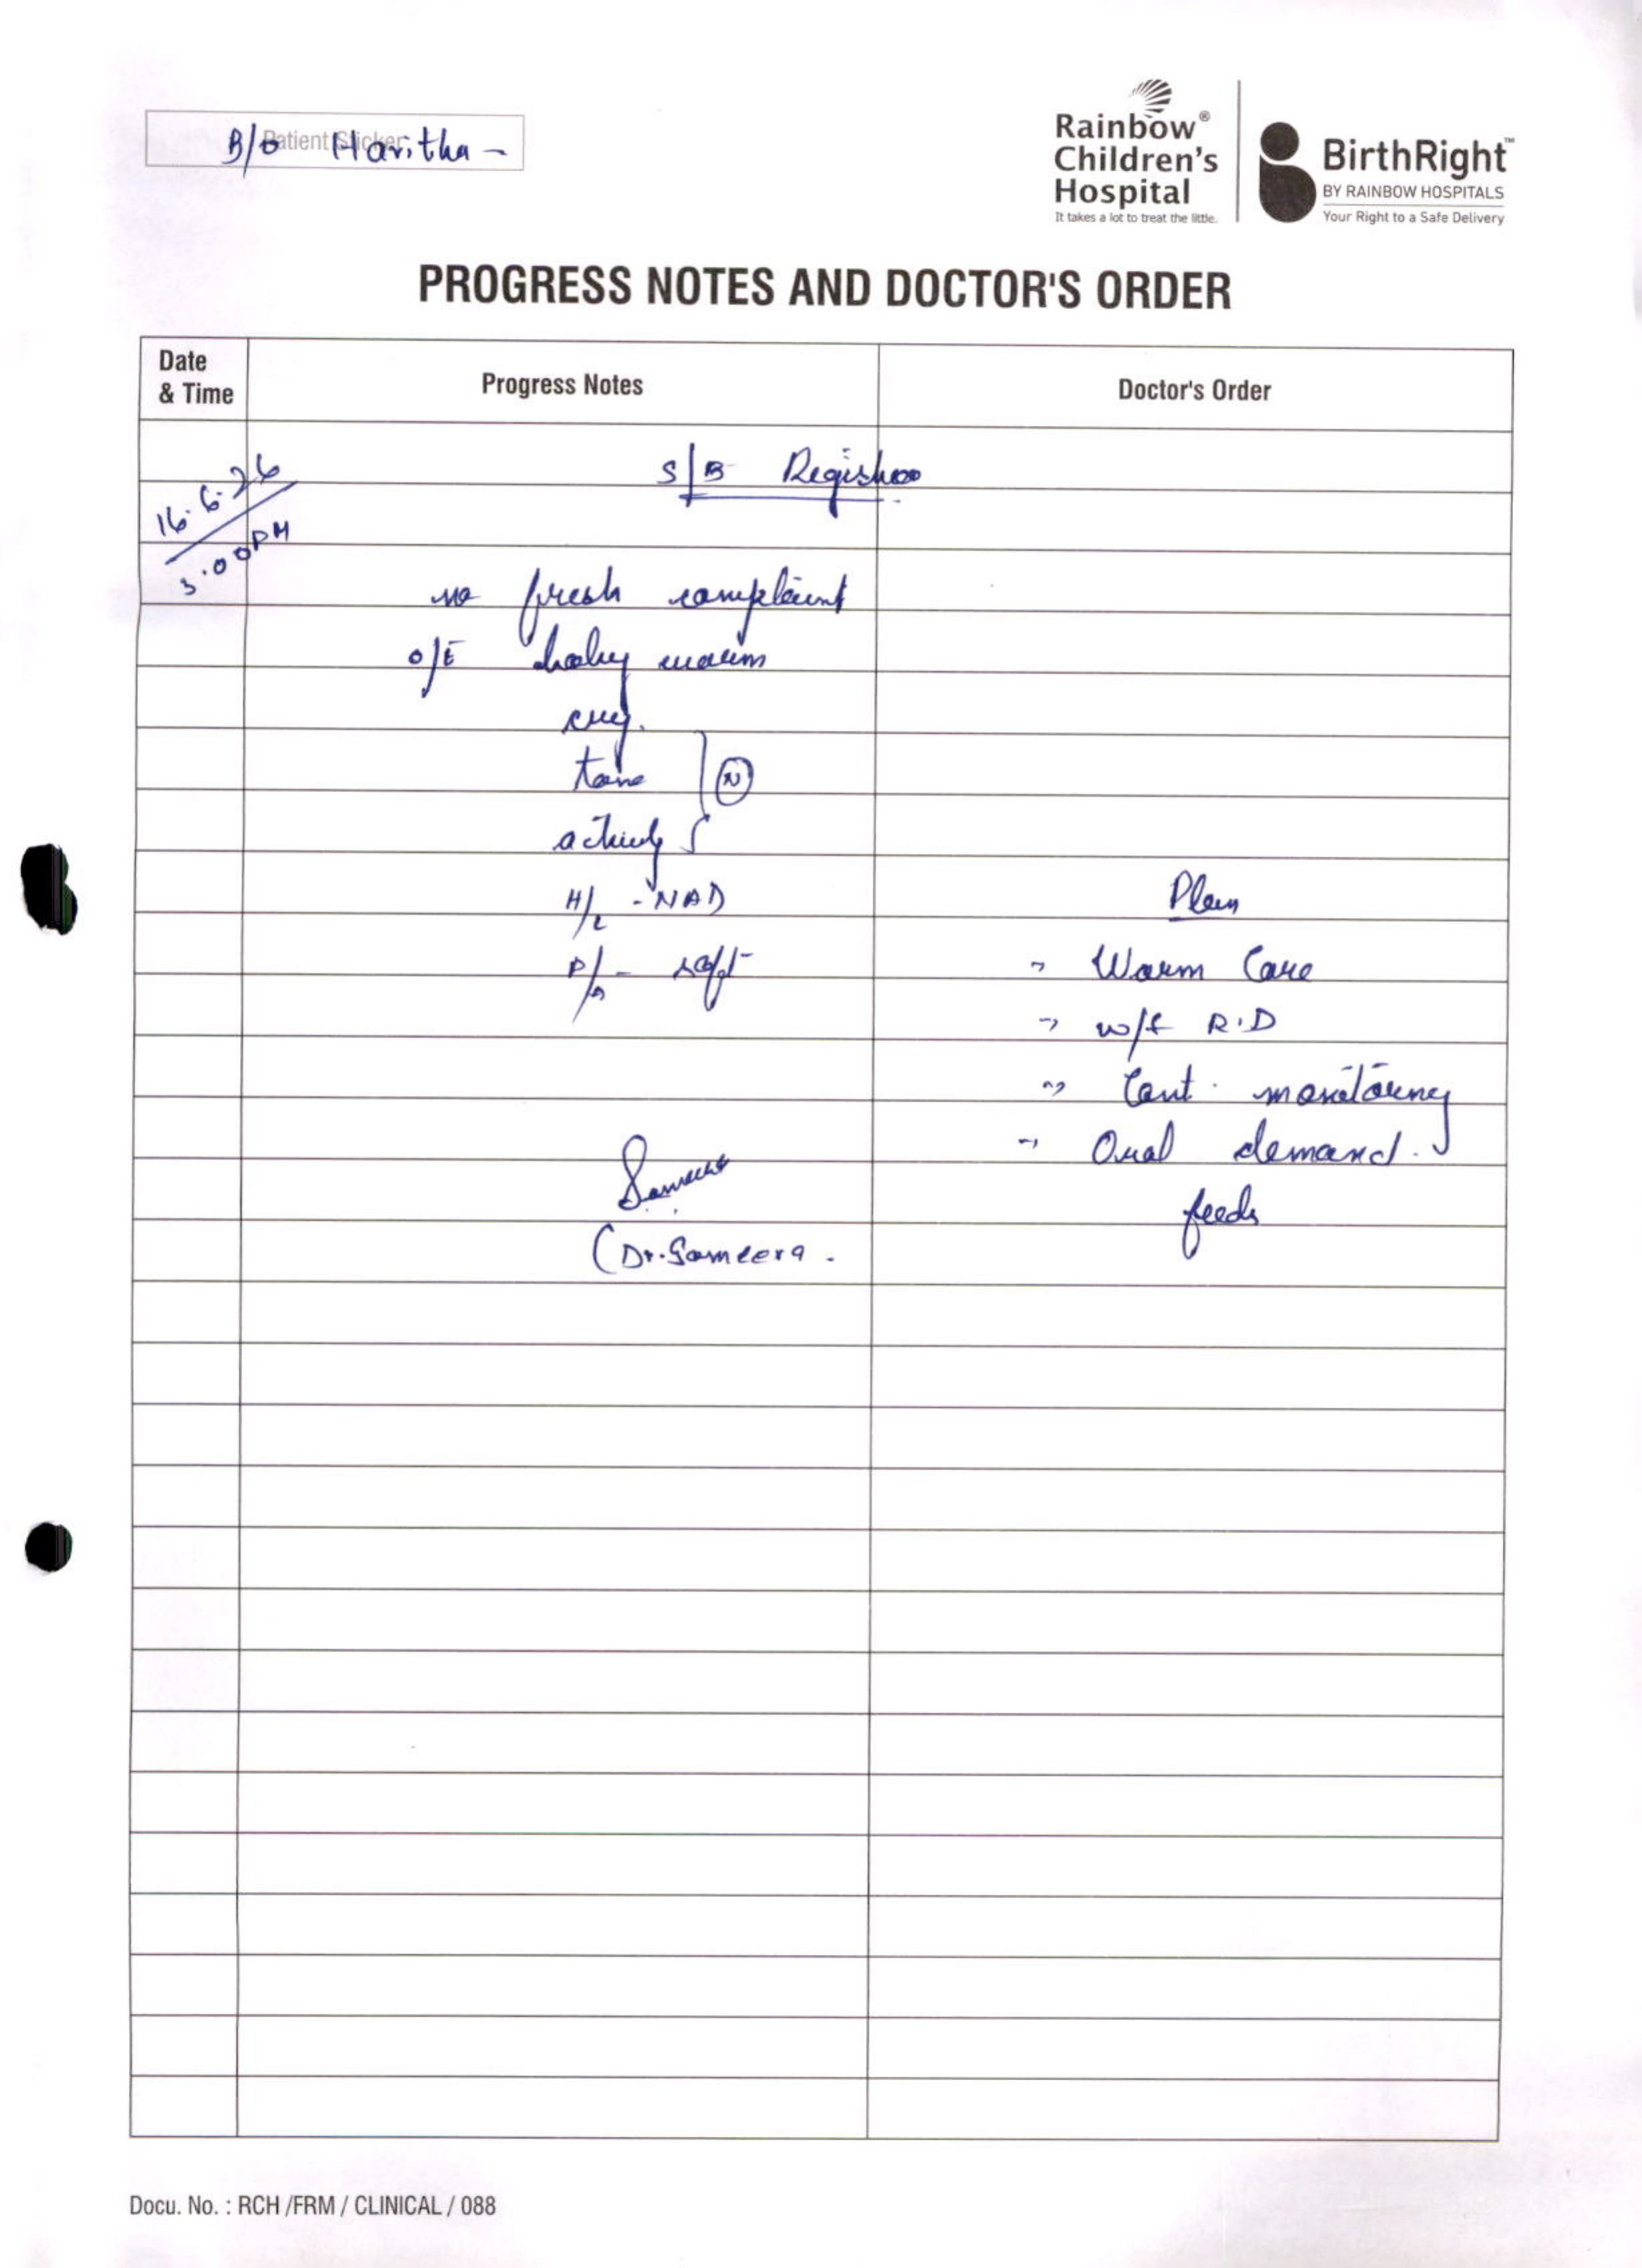 B/o Haritha -
Patient Sticker
Rainbow®
Children's
Hospital
It takes a lot to treat the little.
BirthRight™
BY RAINBOW HOSPITALS
Your Right to a Safe Delivery
PROGRESS NOTES AND DOCTOR'S ORDER
Date
& Time
Progress Notes
Doctor's Order
16.6.26
3.00PM
S/B Registrar
no fresh complaint
O/E baby warm
cry.
tone } (N)
activity
H/L - NAD
P/A - soft
Plan
→ Warm Care
→ w/f R.D
→ Cont. monitoring
→ Oral demand.
feeds
(Dr. Sameera.
Docu. No. : RCH /FRM / CLINICAL / 088